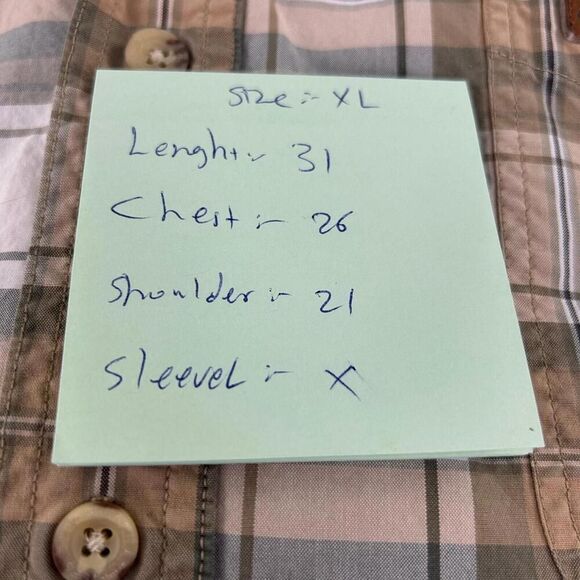 Size :- XL
Lenght :- 31
Chest :- 26
Shoulder :- 21
Sleevel :- X